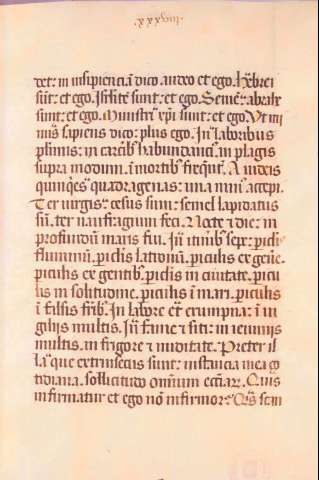 det: in insipientia dico. audeo et ego. Hebrei
sūt: et ego. Isrlite sunt: et ego. Semē: abrahe
sunt: et ego. Ministri xp̄i sunt: et ego. Vt mi
nus sapiens dico: plus ego. In laboribus
plimis: in carcib̄ habundancī. in plagis
supra modum. ī mortib̄ frequēt̄. A iudeis
quinq̄es quadragenas: una minꝰ accepi.
Ter uirgis: cesus sum: semel lapidatus
sū. ter naufragium feci. Nocte ⁊ die: in
profundū maris fui. Iñ itinib̄: sepe: piclis
fluminū. piclis latronū. piculis ex geñe.
piculis ex gentib̄. piclis in ciuitate. picu
lis in solitudine. piculis ī mari. piculis
ī falsis frīb̄. In labore et erumpna: ī ui
gilijs multis. Iñ fame ⁊ siti: in ieiunijs
multis. in frigore ⁊ nuditate. Preter il
la que extrinsecus sunt: instancia mea co
tidiana. sollicitudo omnium eccīaꝝ. Quis
infirmatur et ego nō infirmor?